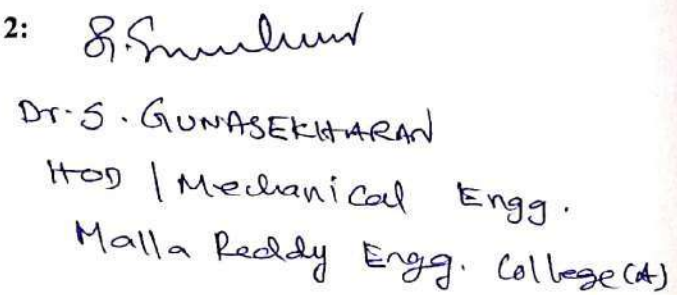 2:
Dr. S. GUNASEKHARAN
HOD / Mechanical Engg.
Malla Reddy Engg. College (A)